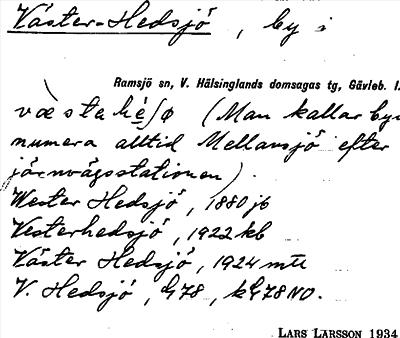 Väster-Hedsjö, by i
Ramsjö sn, V. Hälsinglands domsagas tg, Gävleb. l.
væstahèʃø (Man kallar byn
numera alltid Mellansjö efter
järnvägsstationen).
Wester Hedsjö, 1880 jb
Vesterhedsjö, 1922 kb
Väster Hedsjö, 1924 mtl
V. Hedsjö, G78, kG78NO.
LARS LARSSON 1934